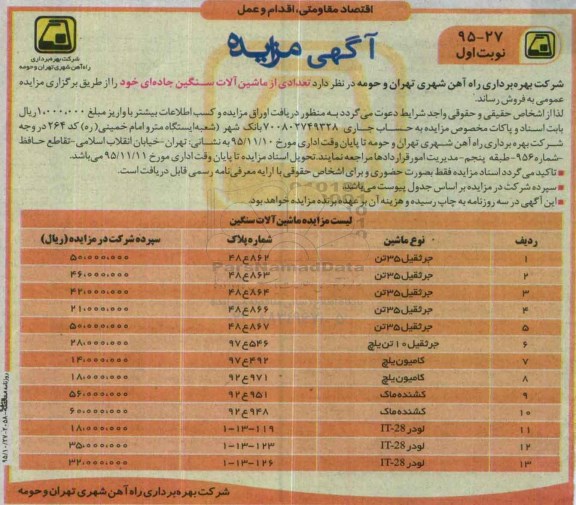 اقتصاد مقاومتی، اقدام و عمل
۹۵-۲۷
نوبت اول
آگهی مزایده
شرکت بهره‌برداری
راه‌آهن شهری تهران و حومه
شرکت بهره‌برداری راه آهن شهری تهران و حومه در نظر دارد تعدادی از ماشین آلات سنگین جاده‌ای خود را از طریق برگزاری مزایده
عمومی به فروش رساند.
لذا از اشخاص حقیقی و حقوقی واجد شرایط دعوت می‌گردد به منظور دریافت اوراق مزایده و کسب اطلاعات بیشتر با واریز مبلغ ۱،۰۰۰،۰۰۰ ریال
بابت اسناد و پاکات مخصوص مزایده به حساب جاری ۷۰۰۸۰۲۷۴۹۳۲۸ بانک شهر (شعبه ایستگاه مترو امام خمینی(ره) کد ۲۶۴ در وجه
شرکت بهره‌برداری راه آهن شهری تهران و حومه تا پایان وقت اداری مورخ ۹۵/۱۱/۱۰ به نشانی: تهران -خیابان انقلاب اسلامی -تقاطع حافظ
-شماره ۹۵۶-طبقه پنجم-مدیریت امور قراردادها مراجعه نمایند. تحویل اسناد مزایده تا پایان وقت اداری مورخ ۹۵/۱۱/۱۱ می‌باشد.
تاکید می‌گردد اسناد مزایده فقط بصورت حضوری و برای اشخاص حقوقی با ارایه معرفی‌نامه رسمی قابل دریافت است.
سپرده شرکت در مزایده بر اساس جدول پیوست می‌باشد.
این آگهی در سه روزنامه به چاپ رسیده و هزینه آن بر عهده برنده مزایده خواهد بود.
لیست مزایده ماشین آلات سنگین
ردیف نوع ماشین شماره پلاک سپرده شرکت در مزایده (ریال)
۱ جرثقیل ۳۵ تن ۸۶۲ع۴۸ ۵۰،۰۰۰،۰۰۰
۲ جرثقیل ۳۵ تن ۸۶۳ع۴۸ ۴۶،۰۰۰،۰۰۰
۳ جرثقیل ۳۵ تن ۸۶۴ع۴۸ ۴۲،۰۰۰،۰۰۰
۴ جرثقیل ۳۵ تن ۸۶۶ع۴۸ ۲۱،۰۰۰،۰۰۰
۵ جرثقیل ۳۵ تن ۸۶۷ع۴۸ ۵۰،۰۰۰،۰۰۰
۶ جرثقیل ۱۰ تن یلچ ۵۴۶ع۹۷ ۲۸،۰۰۰،۰۰۰
۷ کامیون یلچ ۴۹۲ع۹۷ ۱۴،۰۰۰،۰۰۰
۸ کامیون یلچ ۹۷۱ع۹۲ ۱۸،۰۰۰،۰۰۰
۹ کشنده ماک ۹۵۱ع۹۲ ۵۶،۰۰۰،۰۰۰
۱۰ کشنده ماک ۹۴۸ع۹۲ ۶۰،۰۰۰،۰۰۰
۱۱ لودر IT-28 ۱-۱۳-۱۱۹ ۱۸،۰۰۰،۰۰۰
۱۲ لودر IT-28 ۱-۱۳-۱۲۳ ۳۵،۰۰۰،۰۰۰
۱۳ لودر IT-28 ۱-۱۳-۱۲۶ ۳۲،۰۰۰،۰۰۰
شرکت بهره‌برداری راه آهن شهری تهران و حومه
ParsNamadData